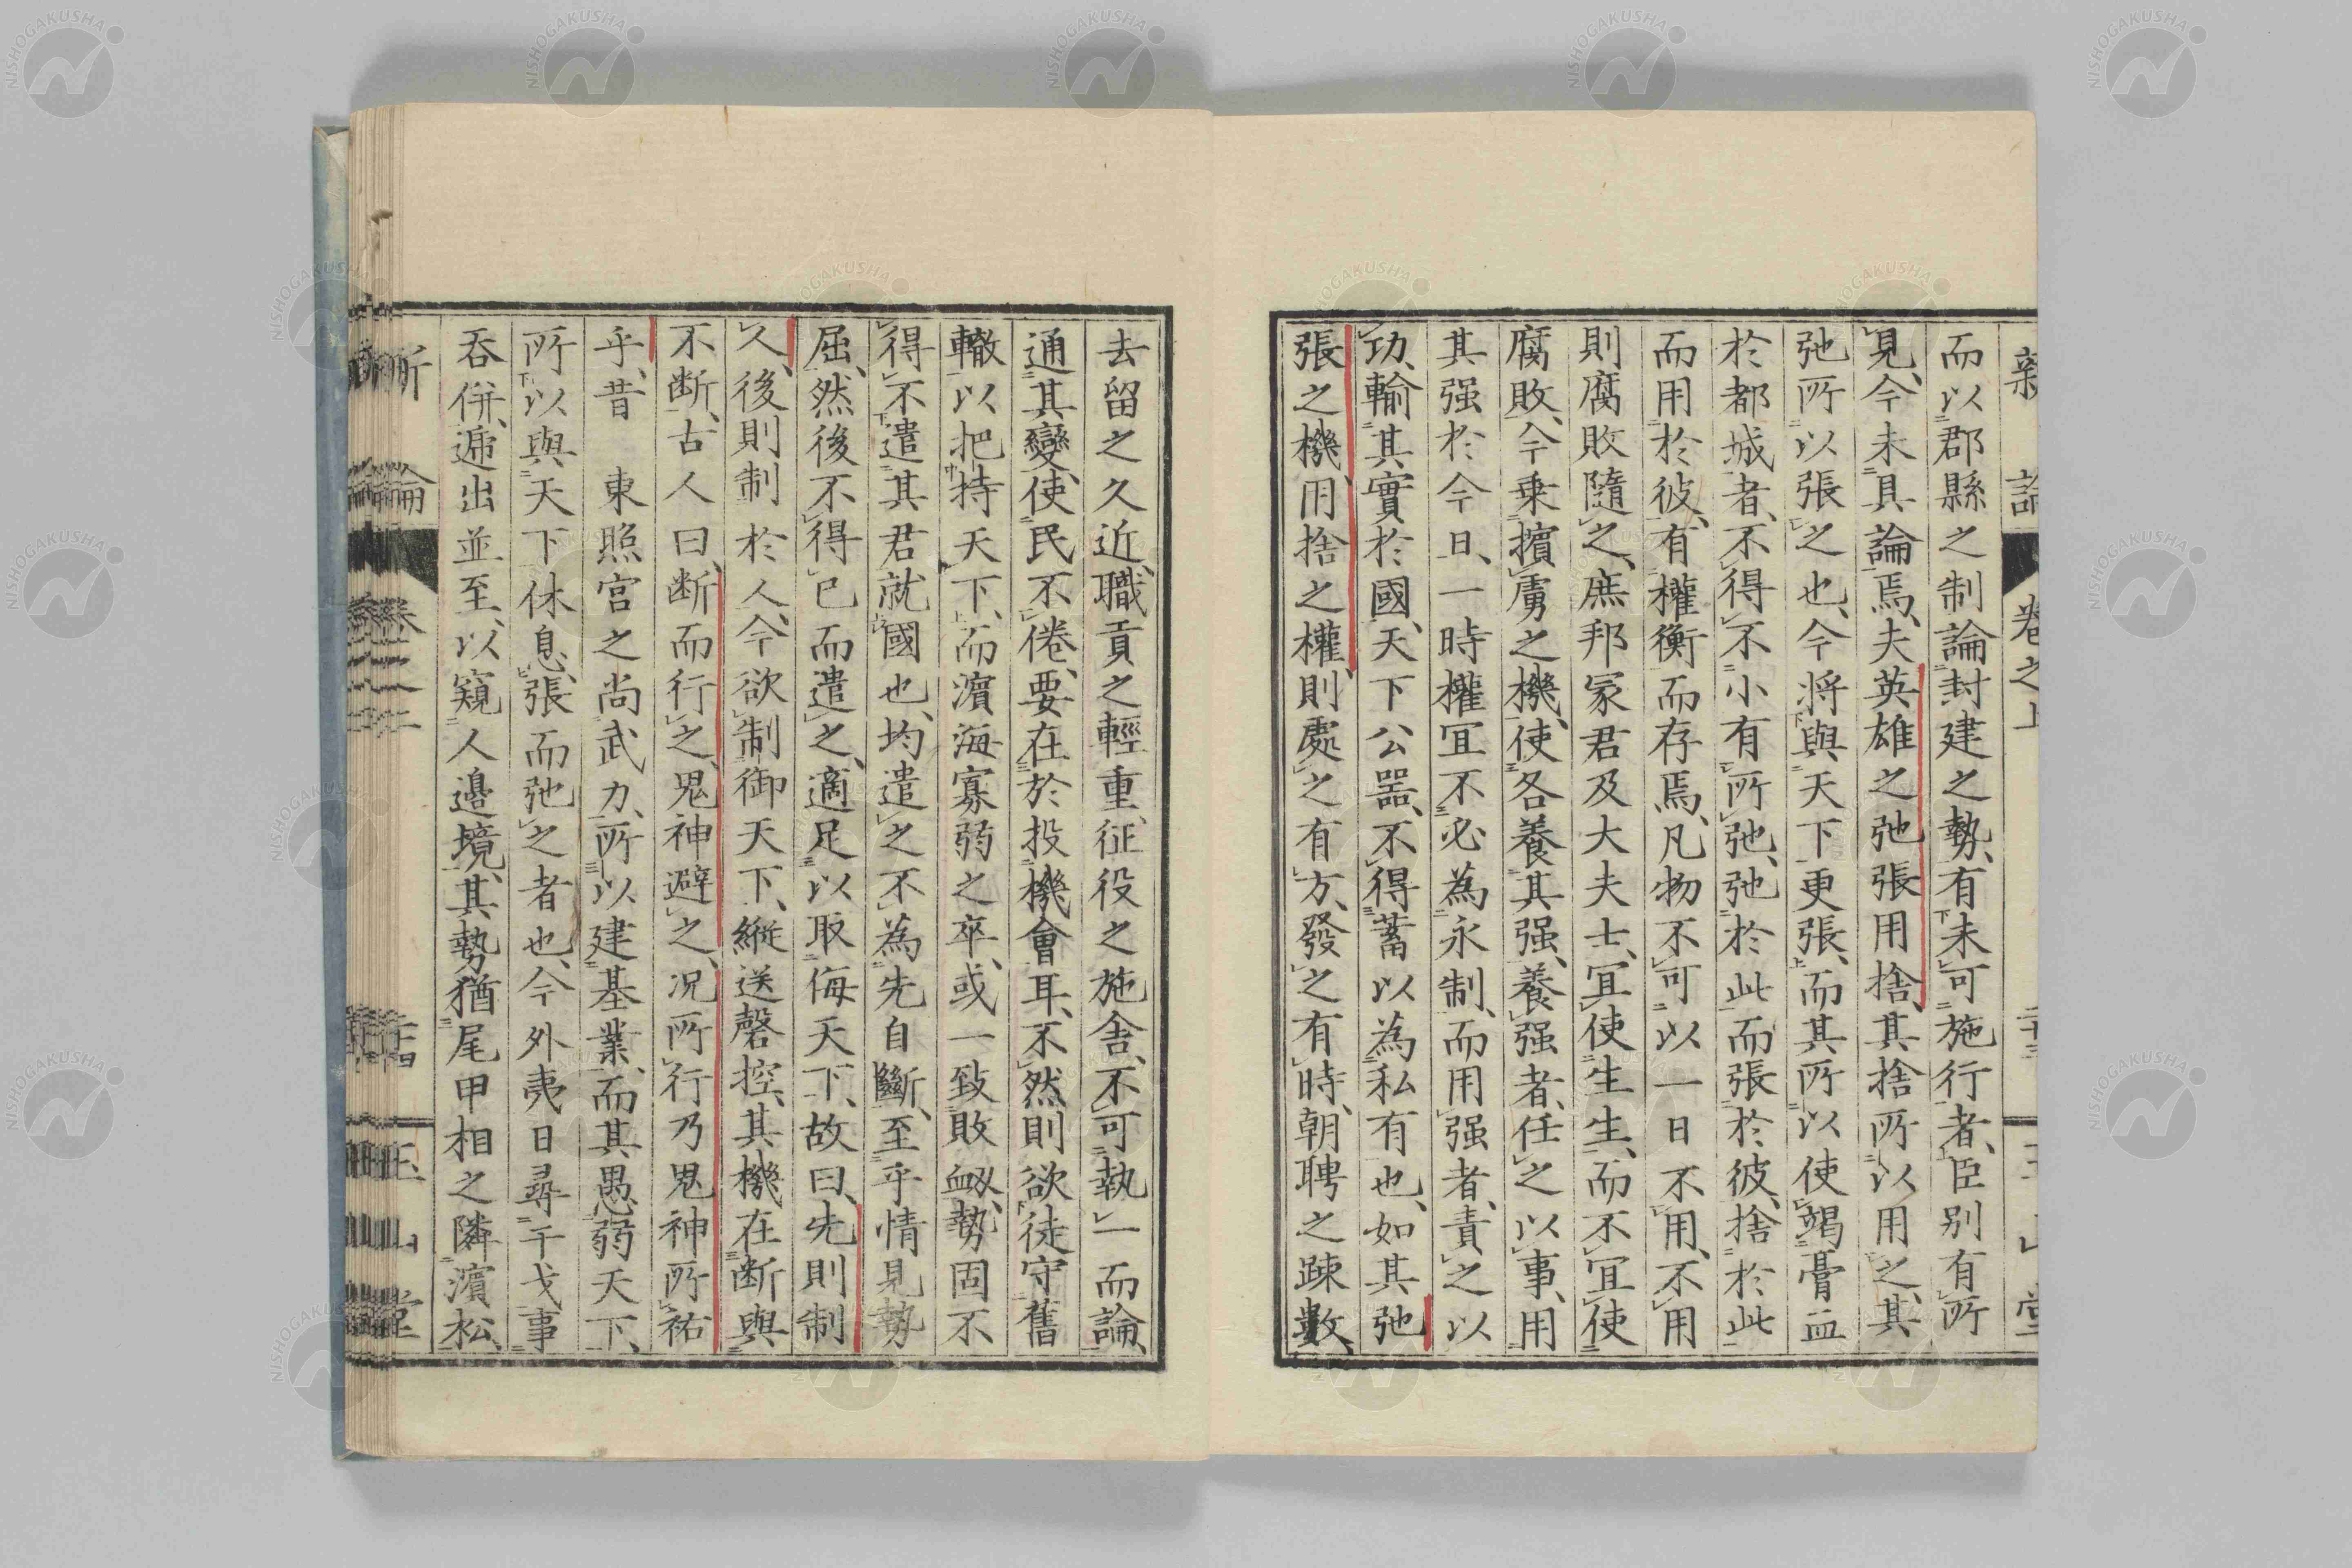 新論 卷之上
而以郡縣之制論封建之勢、有未可施行者、臣別有所
見、今未具論焉、夫英雄之弛張用捨、其捨所以用之、其
弛所以張之也、今將與天下更張、而其所以使竭膏血
於都城者、不得不小有所弛、弛於此而張於彼、捨於此
而用於彼、有權衡而存焉、凡物不可以一日不用、不用
則腐敗隨之、庶邦冢君及大夫士、宜使生生、而不宜使
腐敗、今乗擯虜之機、使各養其强、養强者、任之以事、用
其强於今日、一時權宜不必為永制、而用强者、責之以
功、輸其實於國、天下公器、不得蓄以為私有也、如其弛
張之機、用捨之權、則處之有方、發之有時、朝聘之疎數、
去留之久近、職貢之輕重、征役之施舍、不可執一而論、
通其變、使民不倦、要在於投機會耳、不然則欲徒守舊
轍以把持天下、而濵海寡弱之卒、或一致敗衂、勢固不
得不遣其君就國也、均遣之不為先自斷、至乎情見勢
屈、然後不得已而遣之、適足以取侮天下、故曰、先則制
人、後則制於人、今欲制御天下、縱送磬控、其機在断與
不断、古人曰、断而行之、鬼神避之、况所行乃鬼神所祐
乎、昔　東照宮之尚武力、所以建基業、而其愚弱天下、
所以與天下休息、張而弛之者也、今外夷日尋干戈事
呑併、逓出並至、以窺人邊境、其勢猶尾甲相之隣濵松、